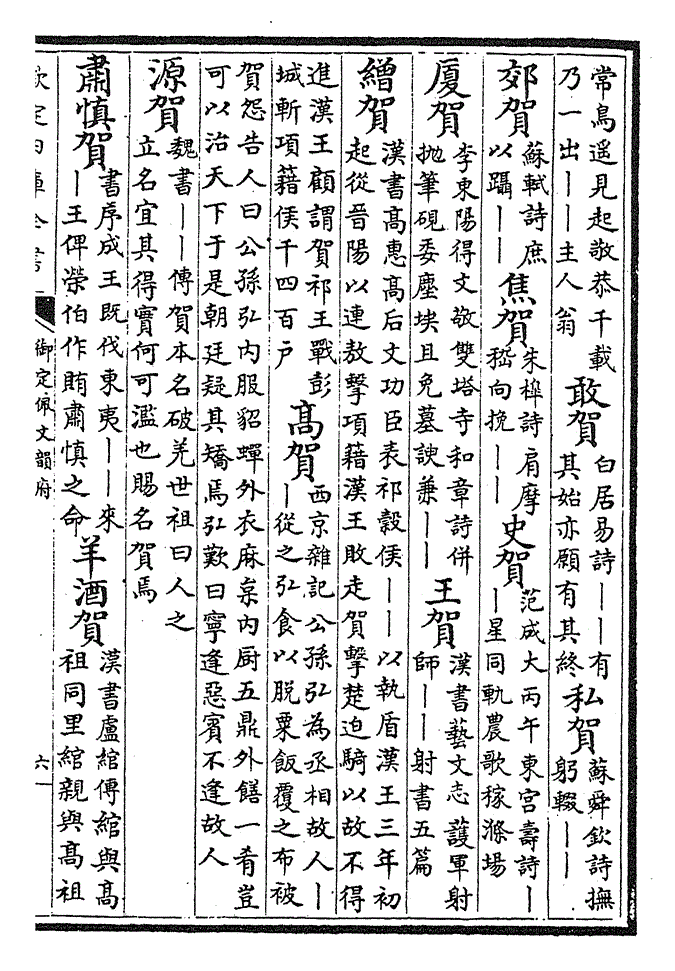 常鳥遥見起敬恭千載
乃一出——主人翁
敢賀
白居易詩——有
其始亦願有其終
私賀
蘇舜欽詩撫
躬輟——
郊賀
蘇軾詩庶
以躡——
焦賀
朱槔詩肩摩
嵇向挽——
史賀
范成大丙午東宫壽詩—
—星同軌農歌稼滌場
厦賀
李東陽得文敬雙塔寺和章詩併
抛筆硯委塵埃且免墓諛兼——
王賀
漢書藝文志護軍射
師——射書五篇
繒賀
漢書高惠高后文功臣表祁穀侯——以執盾漢王三年初
起從晉陽以連敖擊項籍漢王敗走賀擊楚迫騎以故不得
進漢王顧謂賀祁王戰彭
城斬項籍侯千四百戶
髙賀
西京雜記公孫弘為丞相故人—
—從之弘食以脱粟飯覆之布被
賀怨告人曰公孫弘内服貂蟬外衣麻枲内厨五鼎外饍一肴豈
可以治天下于是朝廷疑其矯焉弘歎曰寧逢惡賓不逢故人
源賀
魏書——傳賀本名破羌世祖曰人之
立名宜其得實何可濫也賜名賀焉
肅慎賀
書序成王既伐東夷——來
—王俾榮伯作賄肅慎之命
羊酒賀
漢書盧綰傳綰與髙
祖同里綰親與髙祖
欽定四庫全書
御定佩文韻府
六